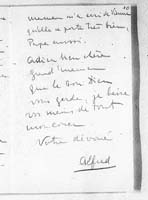 10
maman m'a écrit de Vienne
qu'elle se porte très bien,
Papa aussi.
Adieu ma chère
grand'maman
que le bon Dieu
vous garde, je baise
vos mains de tout
mon coeur
Votre dévoué
Alfred